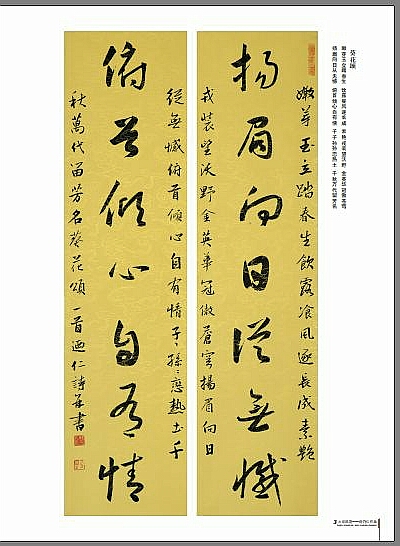 葵花頌
嫩芽玉立踏春生 飲露餐風逐長成 素艷戎裝望沃野 金英華冠傲蒼穹
揚眉向日從無憾 俯首傾心自有情 子子孫孫戀熱土 千秋萬代留芳名
揚眉向日從無憾
俯首傾心自有情
嫩芽玉立踏春生飲露飡風逐長成素艷
戎裝望沃野金英華冠傲蒼穹揚眉向日
從無憾俯首傾心自有情子々孫々戀熱土千
秋萬代留芳名葵花頌一首迺仁詩并書